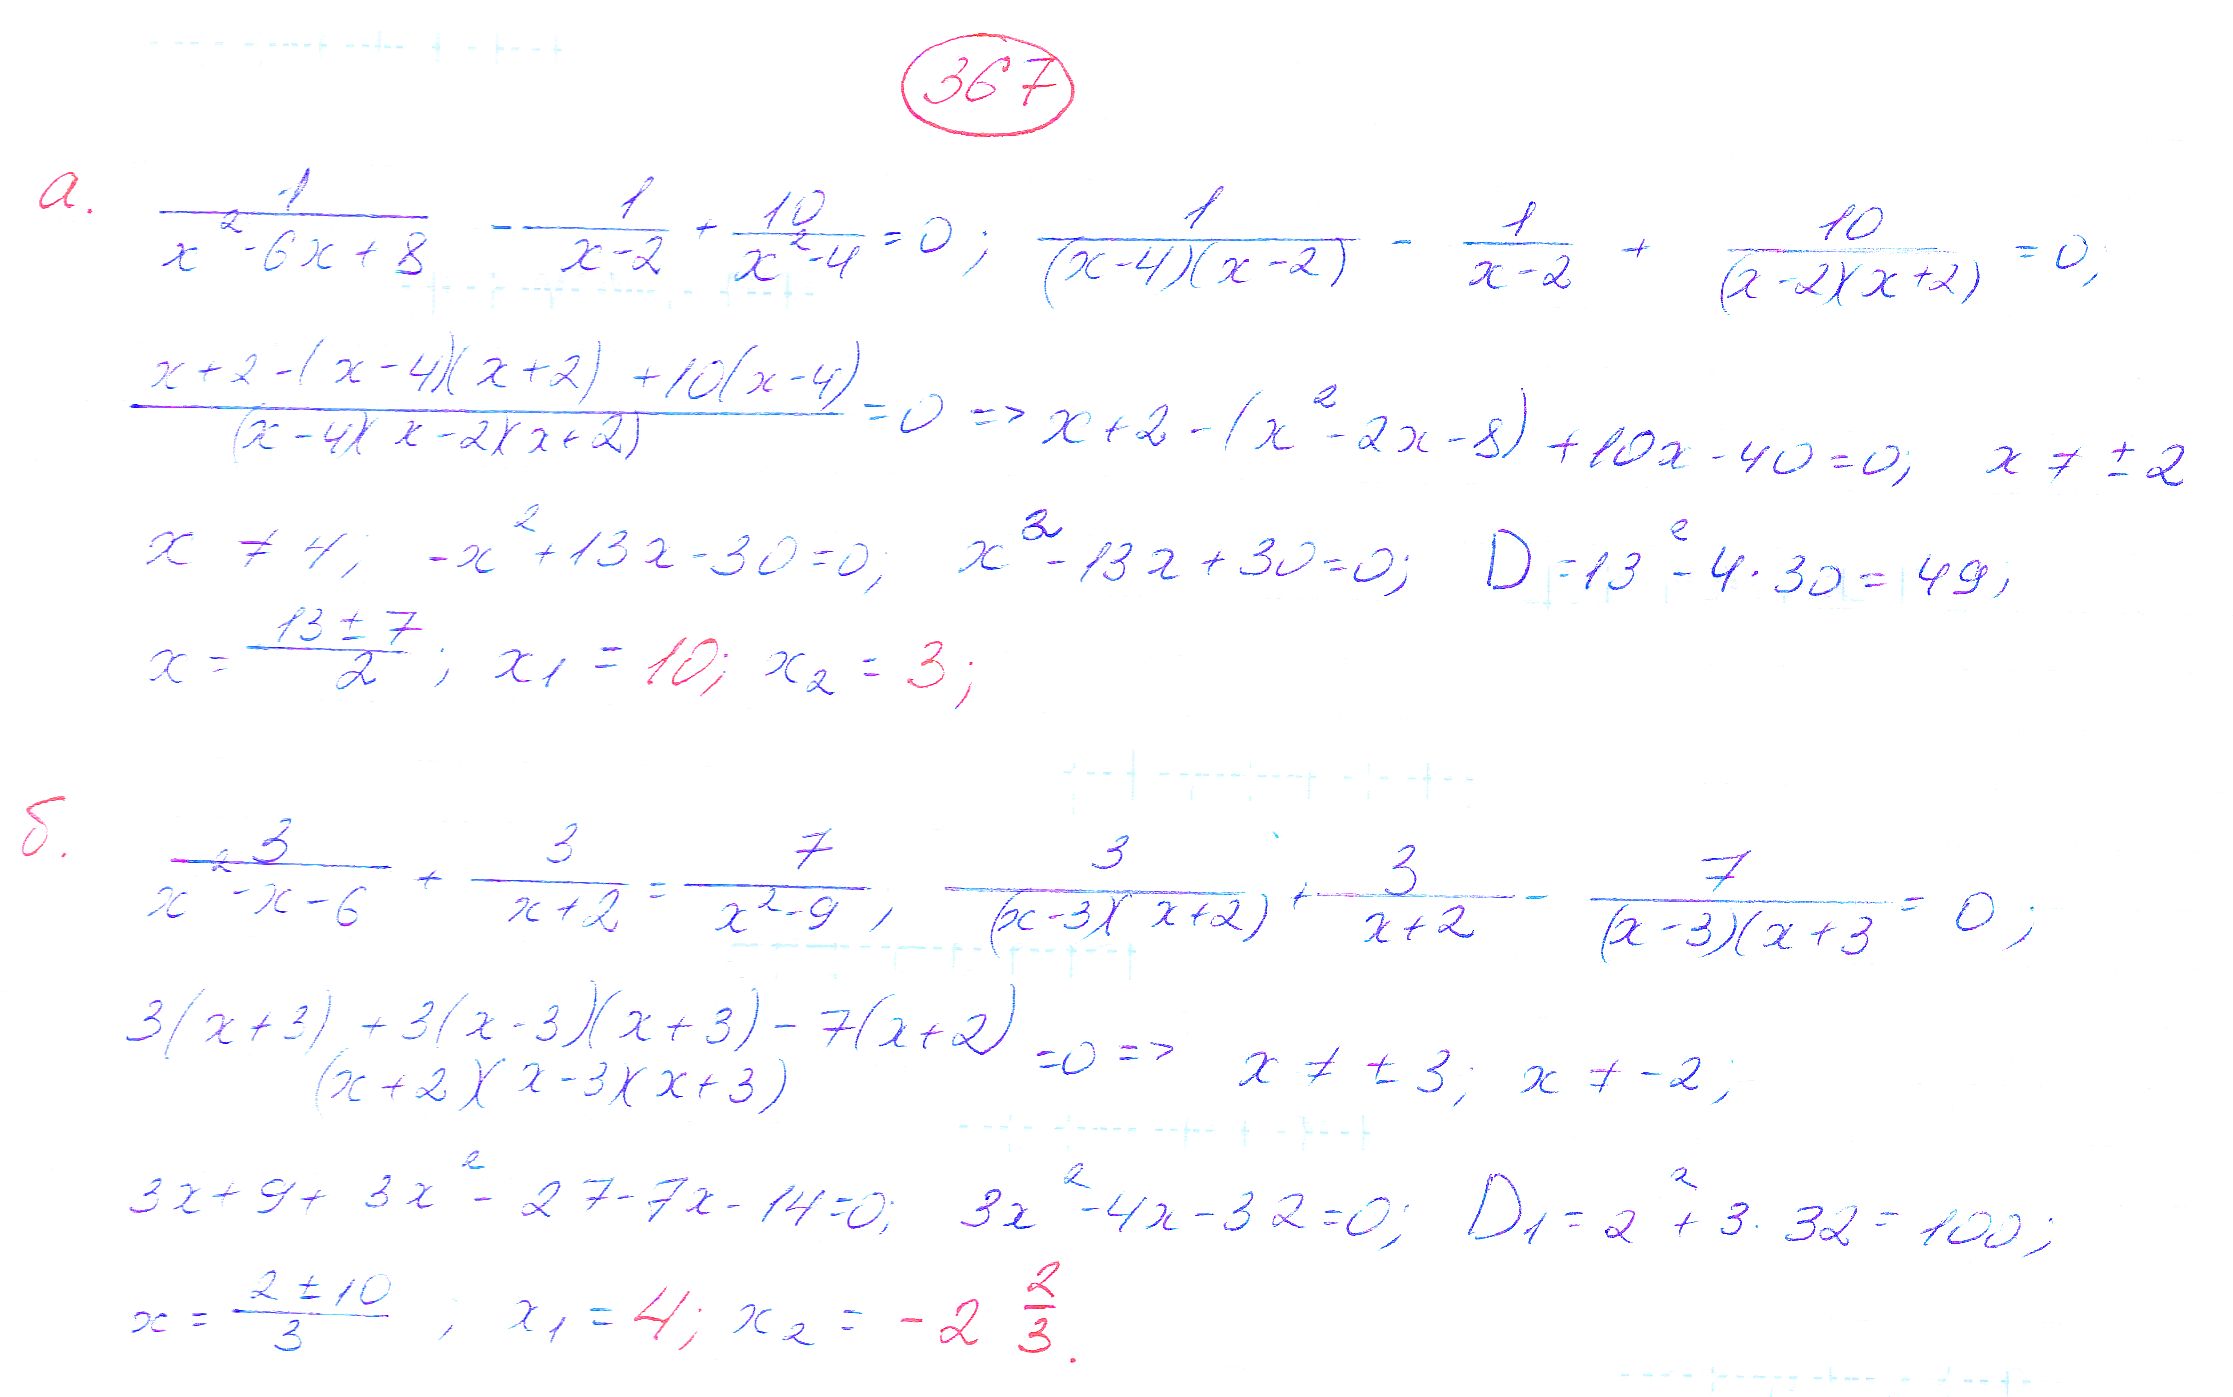 367
а. 1/(x²-6x+8) - 1/(x-2) + 10/(x²-4) = 0; 1/((x-4)(x-2)) - 1/(x-2) + 10/((x-2)(x+2)) = 0;
(x+2-(x-4)(x+2)+10(x-4))/((x-4)(x-2)(x+2)) = 0 => x+2-(x²-2x-8)+10x-40=0; x ≠ ±2
x ≠ 4; -x²+13x-30=0; x²-13x+30=0; D=13²-4·30=49;
x = (13±7)/2; x₁ = 10; x₂ = 3;
б. 3/(x²-x-6) + 3/(x+2) = 7/(x²-9), 3/((x-3)(x+2)) + 3/(x+2) - 7/((x-3)(x+3) = 0;
(3(x+3)+3(x-3)(x+3)-7(x+2))/((x+2)(x-3)(x+3)) =0 => x ≠ ±3; x ≠ -2;
3x+9+3x²-27-7x-14=0; 3x²-4x-32=0; D₁=2²+3·32=100;
x = (2±10)/3; x₁ = 4; x₂ = -2 2/3.